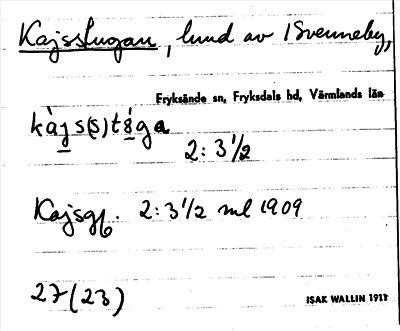 Kajsstugan, lund av 1 Svenneby,
Fryksände sn, Fryksdals hd, Värmlands län
kàjs(s)t8́ga
2: 3 1/2
Kajsgb. 2: 3 1/2 ml 1909
27 (23)
ISAK WALLIN 1911